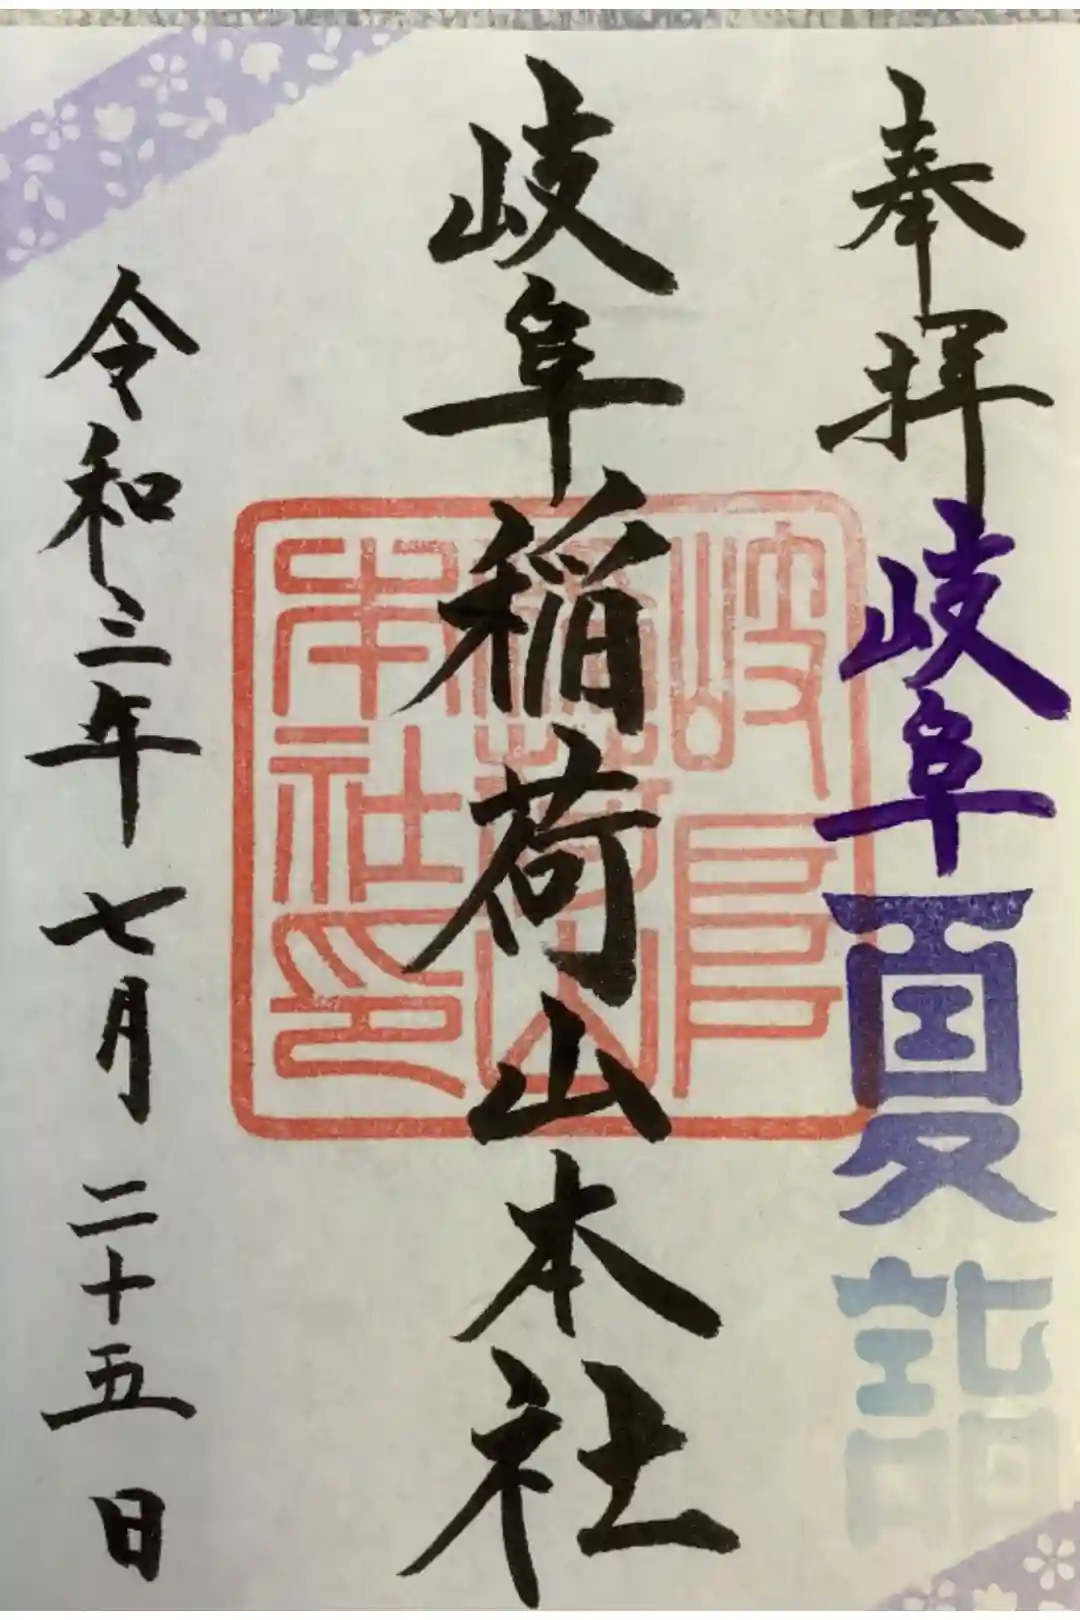 奉拝
岐阜
夏詣
岐阜稲荷山本社
岐阜
稲荷山
本社印
令和三年 七月 二十五日